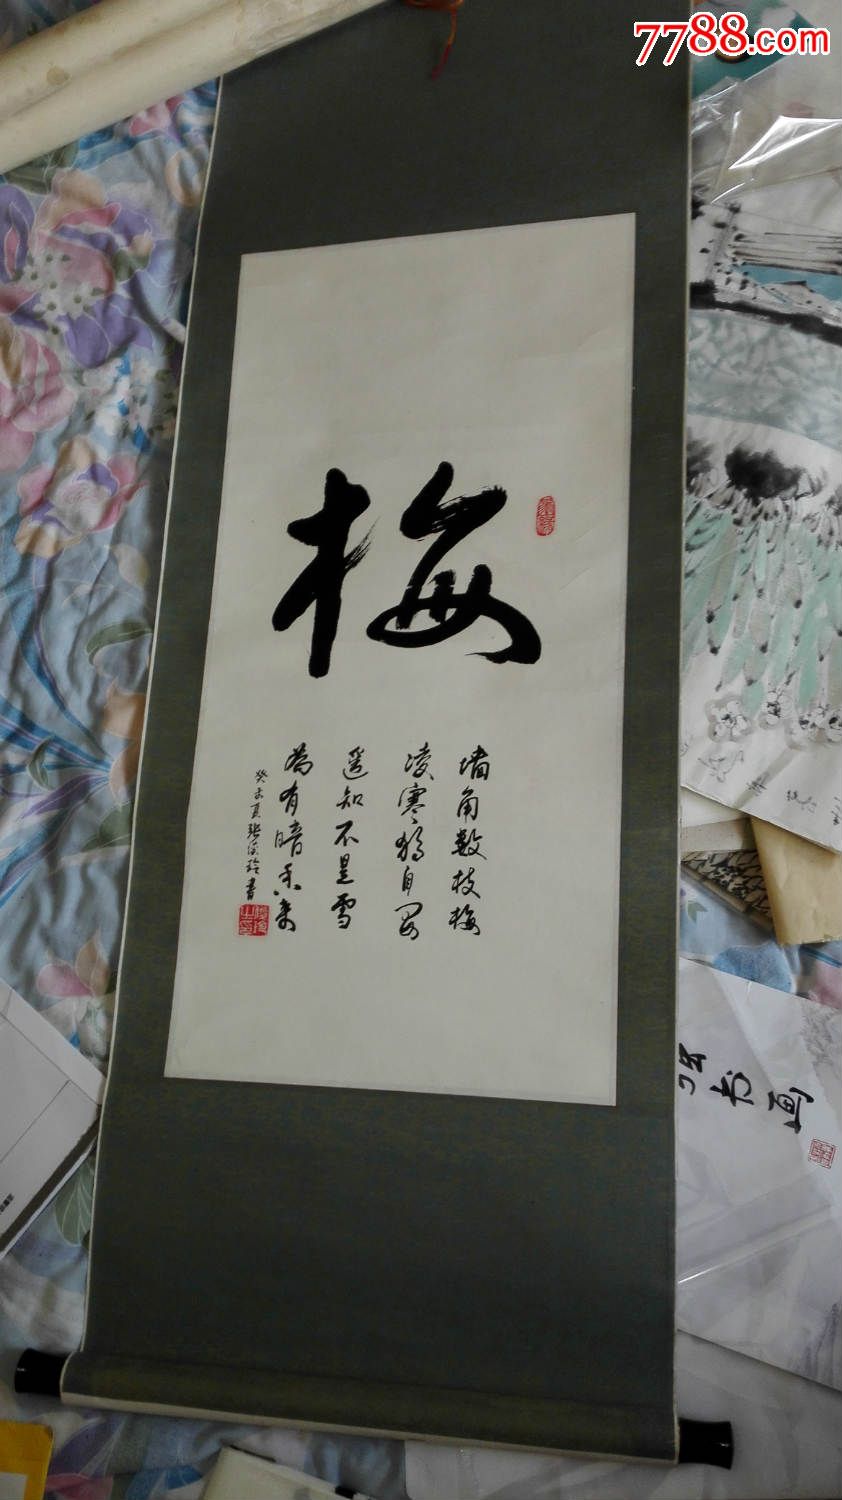 7788.com
梅
墙角数枝梅
凌寒独自开
遥知不是雪
为有暗香来
癸未夏张
书
书画